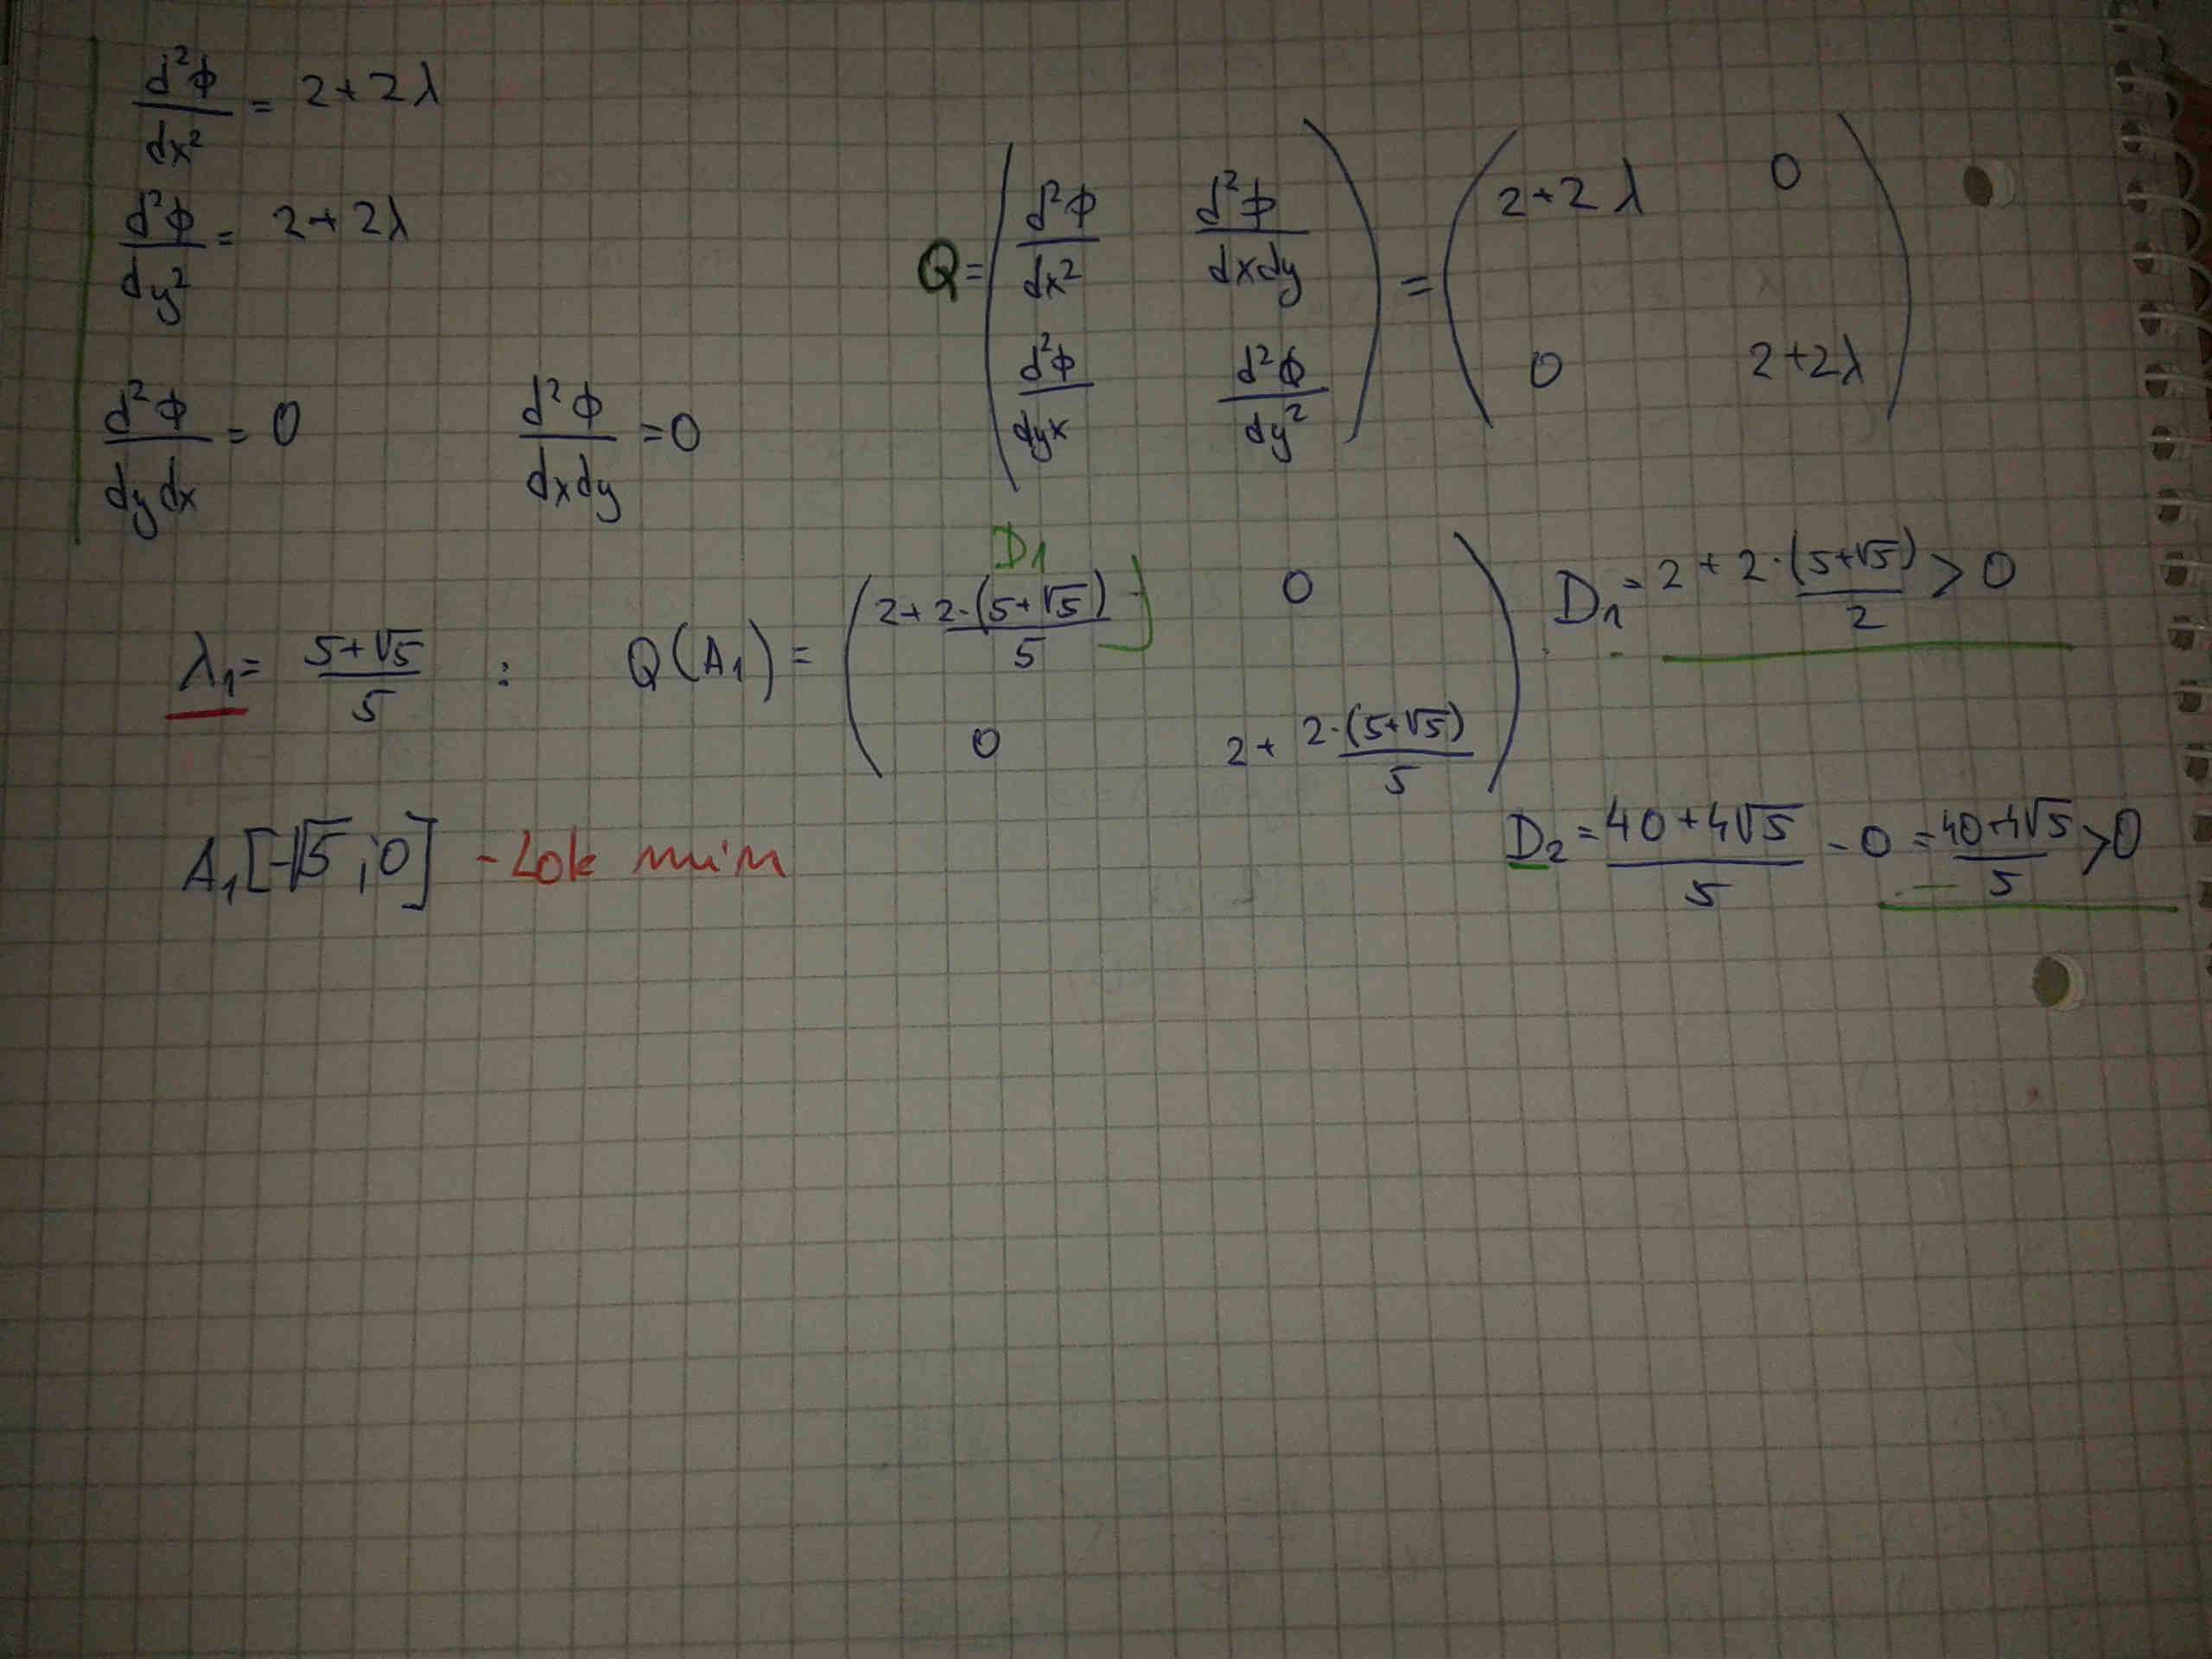 d²ϕ/dx² = 2+2λ
d²ϕ/dy² = 2+2λ
d²ϕ/dydx = 0    d²ϕ/dxdy =0
Q= ( d²ϕ/dx²  d²ϕ/dxdy ; d²ϕ/dyx  d²ϕ/dy² ) = ( 2+2λ  0 ; 0  2+2λ )
D₁
λ₁= (5+√5)/5 : Q(A₁) = ( 2+ 2·(5+√5)/5  0 ; 0  2+ 2·(5+√5)/5 )
D₁= 2+2·(5+√5)/2 > 0
A₁[-√5 ; 0] - Lok min
D₂ = (40+4√5)/5 - 0 = (40+4√5)/5 >0